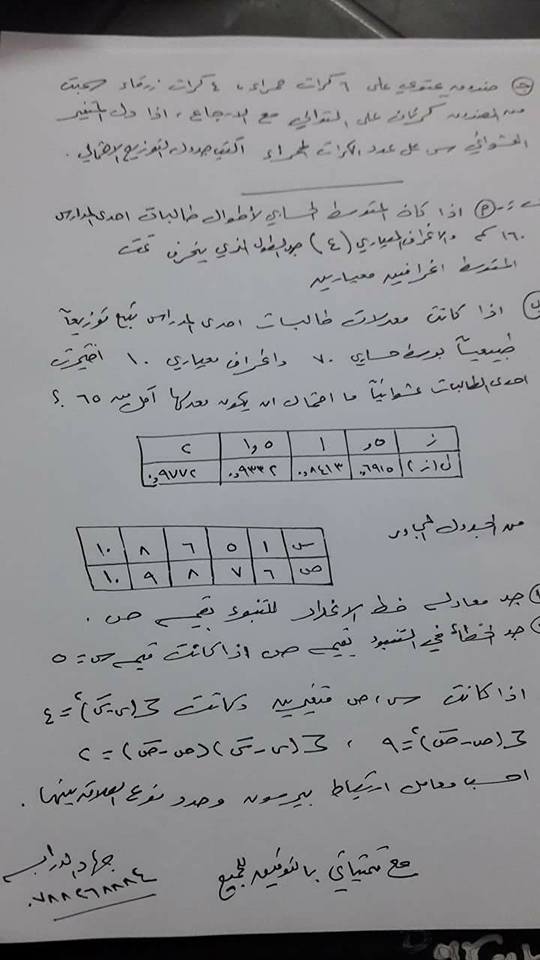 ج) صندوق يحتوي على ٦ كرات حمراء، ٤ كرات زرقاء سحبت
من الصندوق كرتان على التوالي مع الارجاع، اذا دل المتغير
العشوائي س على عدد الكرات الحمراء اكتب جدول التوزيع الاحتمالي.
P) اذا كان المتوسط الحسابي لأطوال طالبات احدى المدارس
١٦٠ سم والانحراف المعياري (٤) جد الطول الذي ينحرف تحت
المتوسط انحرافين معياريين
ب) اذا كانت معدلات طالبات احدى المدارس تتبع توزيعاً
طبيعياً بوسط حسابي ٧٠ وانحراف معياري ١٠ اختيرت
احدى الطالبات عشوائياً ما احتمال ان يكون معدلها أقل من ٦٥ ؟
ز ٥,٠ ١ ١,٥ ٢
ل(ز≥أ) ٠,٦٩١٥ ٠,٨٤١٣ ٠,٩٣٣٢ ٠,٩٧٧٢
من الجدول المجاور
س ١ ٥ ٦ ٨ ١٠
ص ٦ ٧ ٨ ٩ ١٠
جد معادلة خط الانحدار للتنبؤ بقيمة ص.
جد الخطأ في التنبؤ بقيمة ص اذا كانت قيمة س = ٥
اذا كانت س، ص متغيرين وكانت Σ(س-س̄)² = ٤
Σ(ص-ص̄)² = ٩ ، Σ(س-س̄)(ص-ص̄) = ٢
احسب معامل ارتباط بيرسون وحدد نوع العلاقة بينها.
مع تمنياتي بالتوفيق للجميع
جهاد
٠٧٨٨٢٦٨٨٨٤